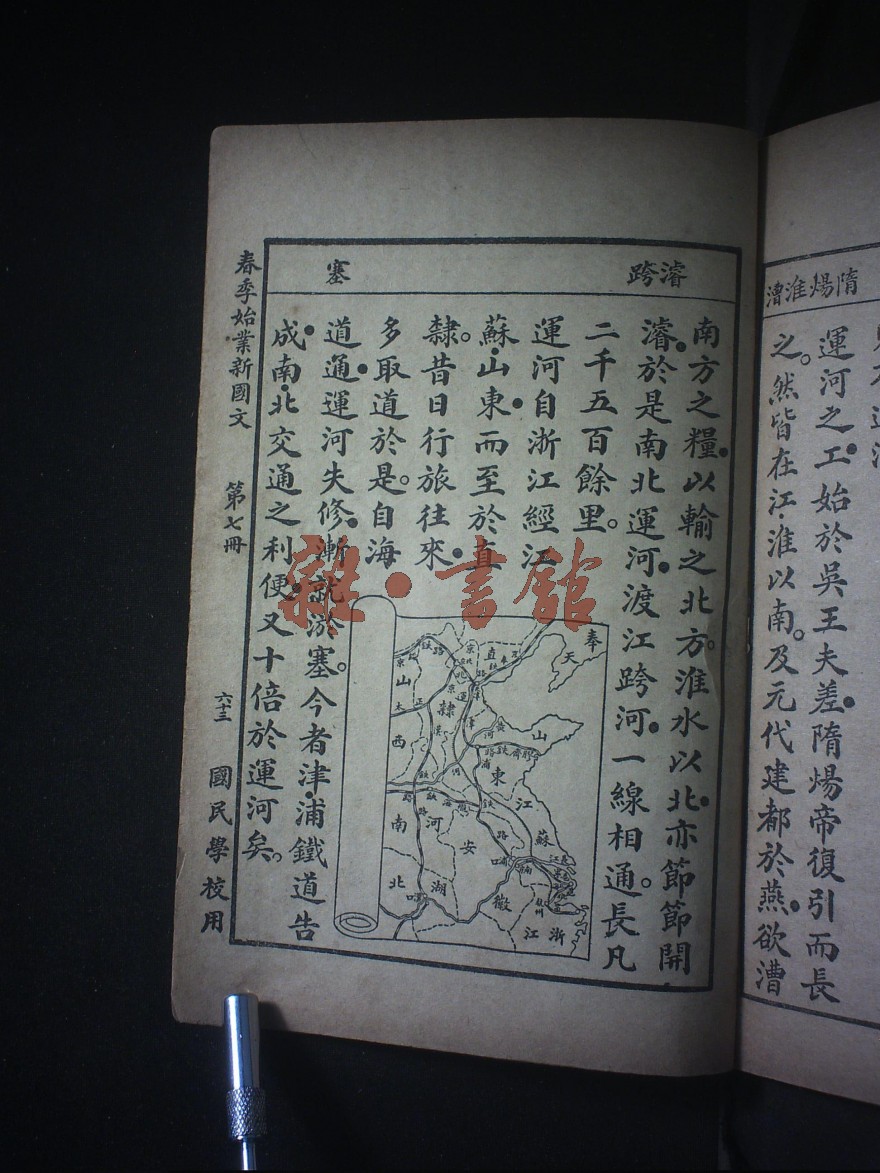 隋煬淮漕
運河之工始於吳王夫差。隋煬帝復引而長
之。然皆在江淮以南。及元代建都於燕。欲漕
濬跨
塞
南方之糧。以輸之北方。淮水以北。亦節節開
濬。於是南北運河。渡江跨河。一線相通。長凡
二千五百餘里。
運河自浙江經江
蘇山東。而至於直
隸。昔日行旅往來。
多取道於是。自海
道通。運河失修。漸就淤塞。今者津浦鐵道告
成。南北交通之利便。又十倍於運河矣。
奉天
直隸
山東
山西
河南
江蘇
安徽
湖北
浙江
春季始業新國文
第七冊
六十三
國民學校用
雜·書館